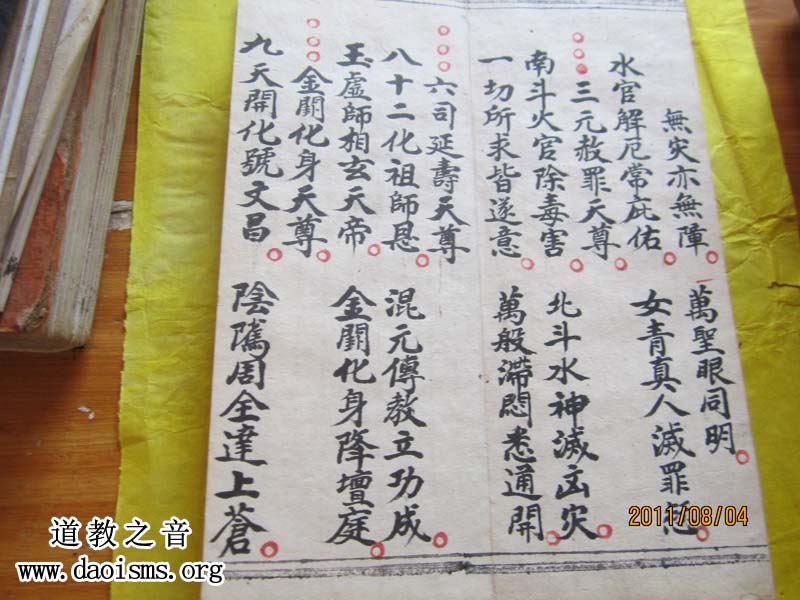 無灾亦無障
萬聖眼同明
水官解厄常庇佑
女青真人滅罪愆
三元赦罪天尊
南斗火官除毒害
北斗水神滅凶灾
一切所求皆遂意
萬般滯悶悉通開
六司延壽天尊
八十二化祖師恩
混元傳教立功成
玉虛師相玄天帝
金闕化身降壇庭
金闕化身天尊
九天開化號文昌
陰隲周全達上蒼
2011/08/04
道教之音
www.daoisms.org